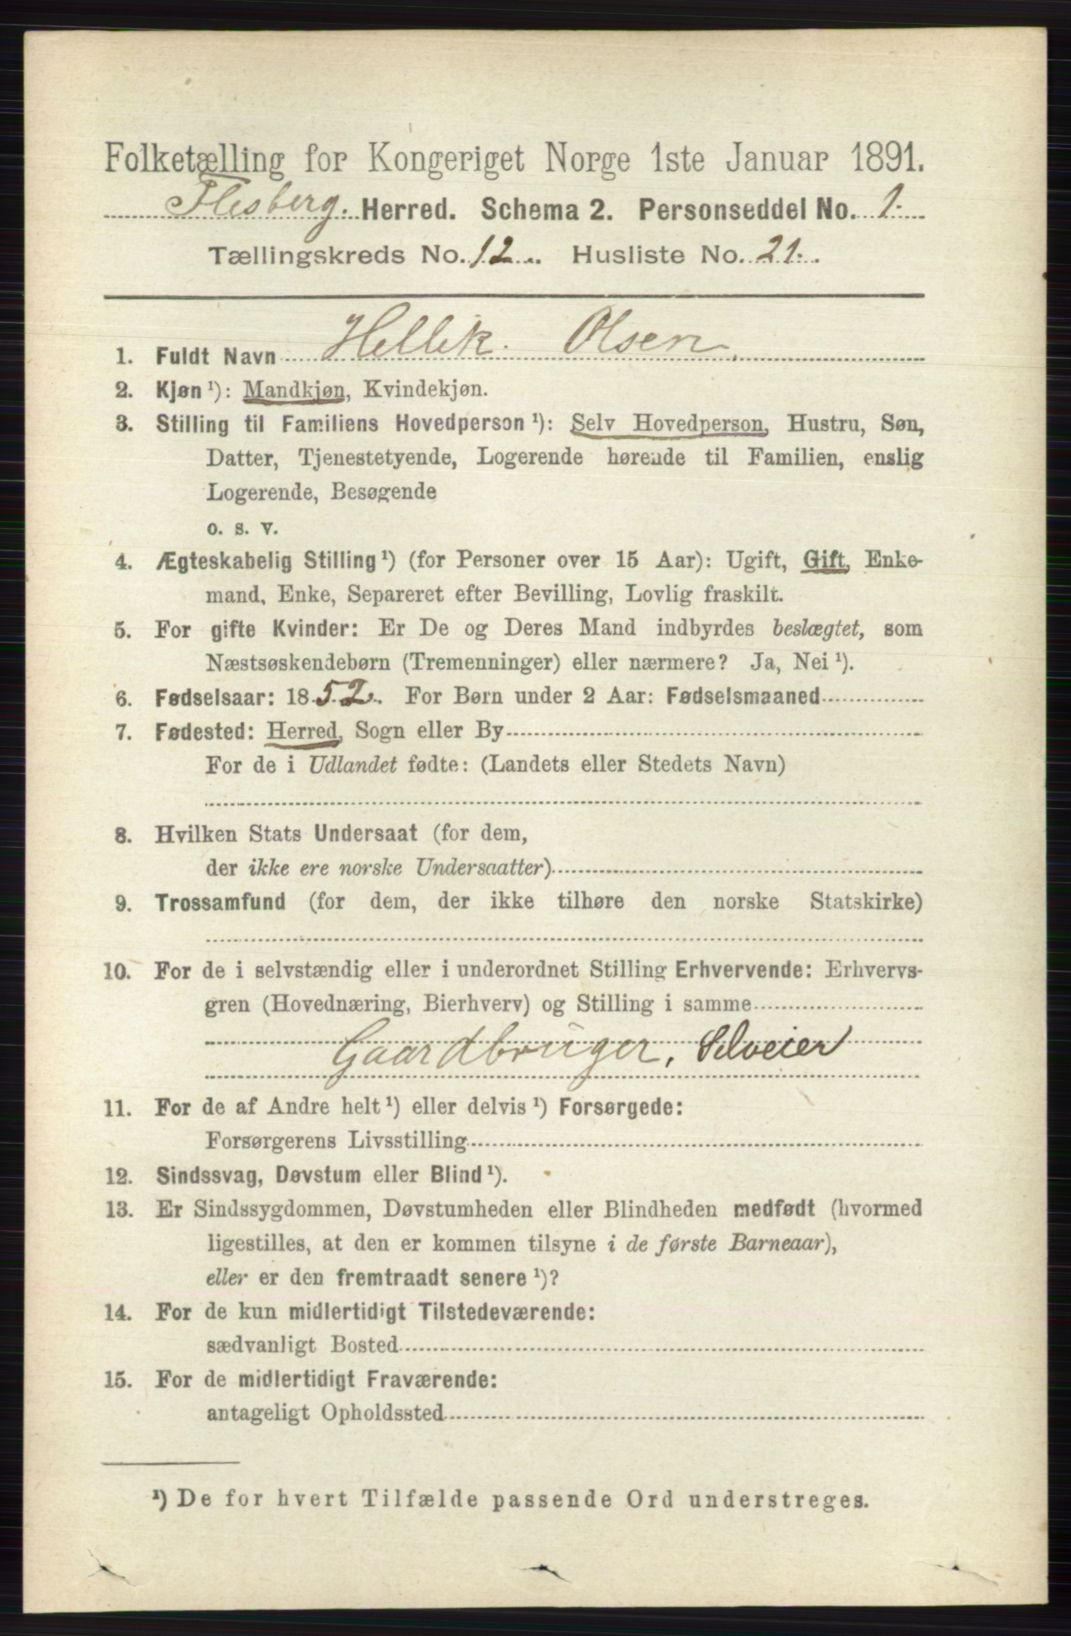 Folketælling for Kongeriget Norge 1ste Januar 1891.
Flesberg. Herred. Schema 2. Personseddel No. 1.
Tællingskreds No. 12. Husliste No. 21.
1. Fuldt Navn Hellik Olsen
2. Kjøn ¹): Mandkjøn, Kvindekjøn.
3. Stilling til Familiens Hovedperson ¹): Selv Hovedperson, Hustru, Søn,
Datter, Tjenestetyende, Logerende hørende til Familien, enslig
Logerende, Besøgende
o. s. v.
4. Ægteskabelig Stilling ¹) (for Personer over 15 Aar): Ugift, Gift, Enke-
mand, Enke, Separeret efter Bevilling, Lovlig fraskilt.
5. For gifte Kvinder: Er De og Deres Mand indbyrdes beslægtet, som
Næstsøskendebørn (Tremenninger) eller nærmere? Ja, Nei ¹).
6. Fødselsaar: 1852. For Børn under 2 Aar: Fødselsmaaned
7. Fødested: Herred, Sogn eller By
For de i Udlandet fødte: (Landets eller Stedets Navn)
8. Hvilken Stats Undersaat (for dem,
der ikke ere norske Undersaatter)
9. Trossamfund (for dem, der ikke tilhøre den norske Statskirke)
10. For de i selvstændig eller i underordnet Stilling Erhvervende: Erhvervs-
gren (Hovednæring, Bierhverv) og Stilling i samme
Gaardbruger, Selveier
11. For de af Andre helt ¹) eller delvis ¹) Forsørgede:
Forsørgerens Livsstilling
12. Sindssvag, Døvstum eller Blind ¹).
13. Er Sindssygdommen, Døvstumheden eller Blindheden medfødt (hvormed
ligestilles, at den er kommen tilsyne i de første Barneaar),
eller er den fremtraadt senere ¹)?
14. For de kun midlertidigt Tilstedeværende:
sædvanligt Bosted
15. For de midlertidigt Fraværende:
antageligt Opholdssted
¹) De for hvert Tilfælde passende Ord understreges.